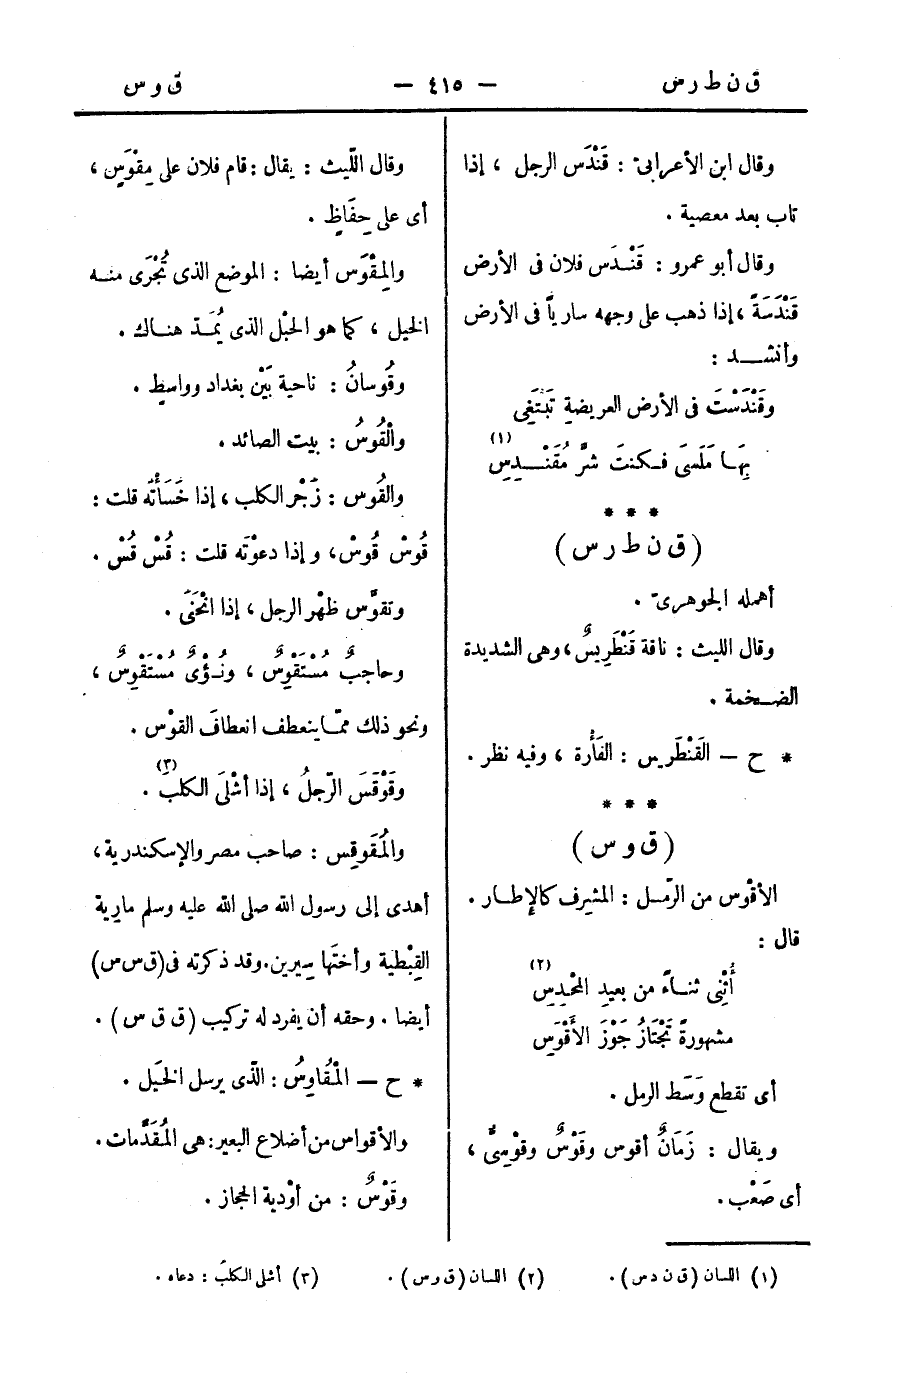 ق ن ط ر س
— ٤١٥ —
ق و س
وقال ابن الأعرابىّ : قَنْدَس الرجل ، إذا
تاب بعد معصية .
وقال أبو عمرو : قَنْدَس فلان فى الأرض
قَنْدَسَةً ، إذا ذهب على وجهه سارياً فى الأرض
وأنشد :
وقَنْدَسْتَ فى الأرض العريضةِ تَبْتَغِى
بِهَا مَلَسَى فكنتَ شرَّ مُقَنْدِسِ (١)
* * *
( ق ن ط ر س )
أهمله الجوهرىّ .
وقال الليث : ناقة قَنْطَرِيسٌ ، وهى الشديدة
الضخمة .
* ح — القَنْطَرِيس : الفَأْرة ، وفيه نظر .
* * *
( ق و س )
الأقْوس من الرّمل : المشرِف كالإطار .
قال :
أُثْنِى ثناءً من بعيدِ المَحْدِسِ (٢)
مشهورةً تَجْتَازُ جَوْزَ الأَقْوَسِ
أى تقطع وَسَط الرمل .
ويقال : زَمَانٌ أقوس وقَوْسٌ وقوْسِىٌّ ،
أى صَعْب .
وقال اللّيث : يقال : قام فلان على مِقْوَسٍ ،
أى على حِفَاظٍ .
والمِقْوَس أيضا : الموضع الذى تُجْرَى منه
الخيل ، كما هو الحَبْل الذى يُمَدّ هناك .
وقُوسانُ : ناحية بَيْن بغداد وواسِطٍ .
والْقُوسُ : بيت الصائد .
والقُوس : زَجْر الكلب ، إذا خَسَأْتَه قلت :
قُوسْ قُوسْ ، وإذا دعوْتَه قلت : قُسْ قُسْ .
وتقوَّس ظهْر الرجل ، إذا انْحَنَى .
وحاجبٌ مُسْتَقْوِسٌ ، ونُؤْىٌ مُسْتَقْوِسٌ ،
ونحو ذلك ممّا ينعطف انعطافَ القوْس .
وقَوْقَسَ الرّجلُ ، إذا أشْلَى الكلبَ (٣) .
والمُقَوقِس : صاحب مصر والإسكندرية ،
أهدى إلى رسول الله صلى الله عليه وسلم مارية
القِبْطية وأختَها سِيرين . وقد ذكرته فى ( ق س س )
أيضا . وحقه أن يفرد له تركيب ( ق ق س ) .
* ح — المُقَاوِسُ : الذّى يرسل الخيل .
والأقواس من أضلاع البعير : هى المُقَدَّمات .
وقَوْسٌ : من أوْدية الحجاز .
(١) اللسان ( ق ن د س ) .
(٢) اللسان ( ق و س ) .
(٣) أشلى الكلبَ : دعاه .